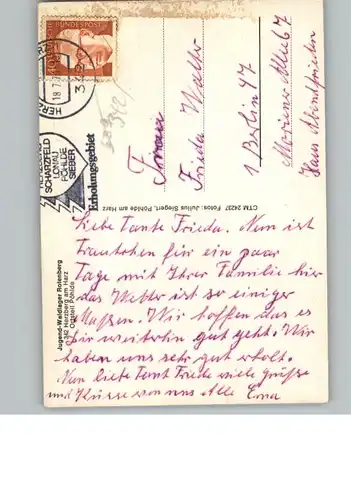 DEUTSCHE BUNDESPOST
HERZ
18.7.7
342
HERZBERG
SCHARZFELD
LONAU
PÖHLDE
SIEBER
Erholungsgebiet
Frau
Frieda
1 Berlin 47
Mariener Allee 67
Haus Abendfrieden
CTM 24237 Fotos: Julius Siegert, Pöhlde am Harz
Jugend-Waldlager Rotenberg
D 342 Herzberg am Harz
Ortsteil Pöhlde
Liebe Tante Frieda. Nun ist
Trautchen für ein paar
Tage mit Ihrer Familie hier
das Wetter ist so einiger
Maßen. Wir hoffen das es
Dir weiterhin gut geht. Wir
haben uns sehr gut erholt.
Nun liebe Tant Friede viele grüße
und Küsse von uns Alle Erna